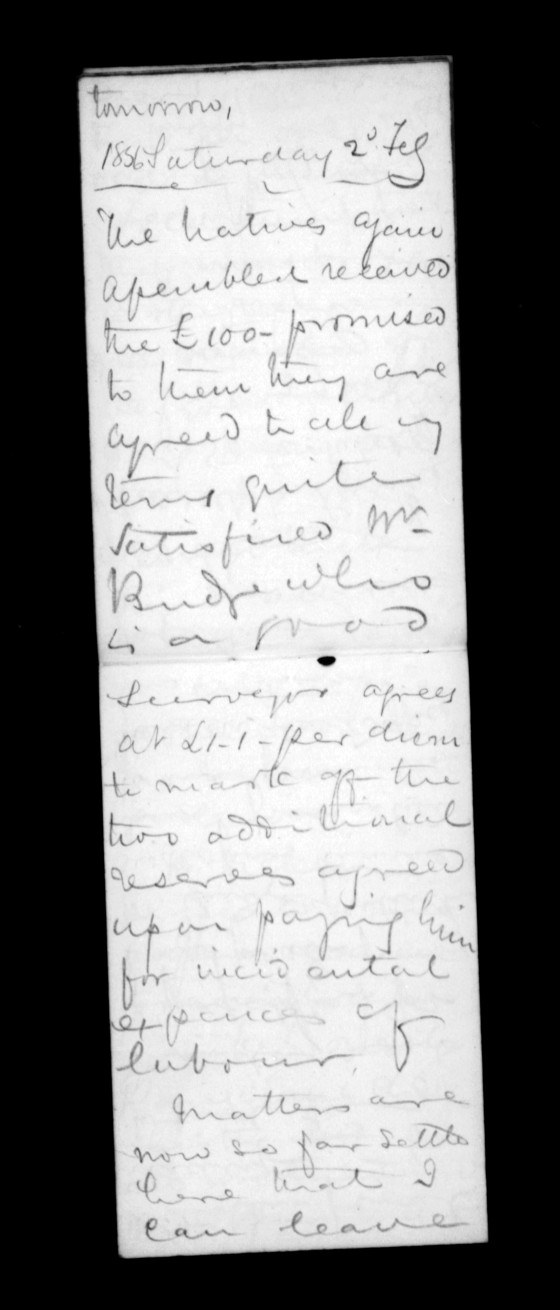 tomorrow,
1856 Saturday 2d Feb
The Natives again
assembled received
the £100- promised
to them they are
agreed to all my
terms quite
satisfied Mr
Budge who
is a good
Surveyor agrees
at £1-1- per diem
to mark off the
two additional
reserves agreed
upon paying him
for incidental
expences of
labour.
Matters are
now so far settle
here that I
can leave